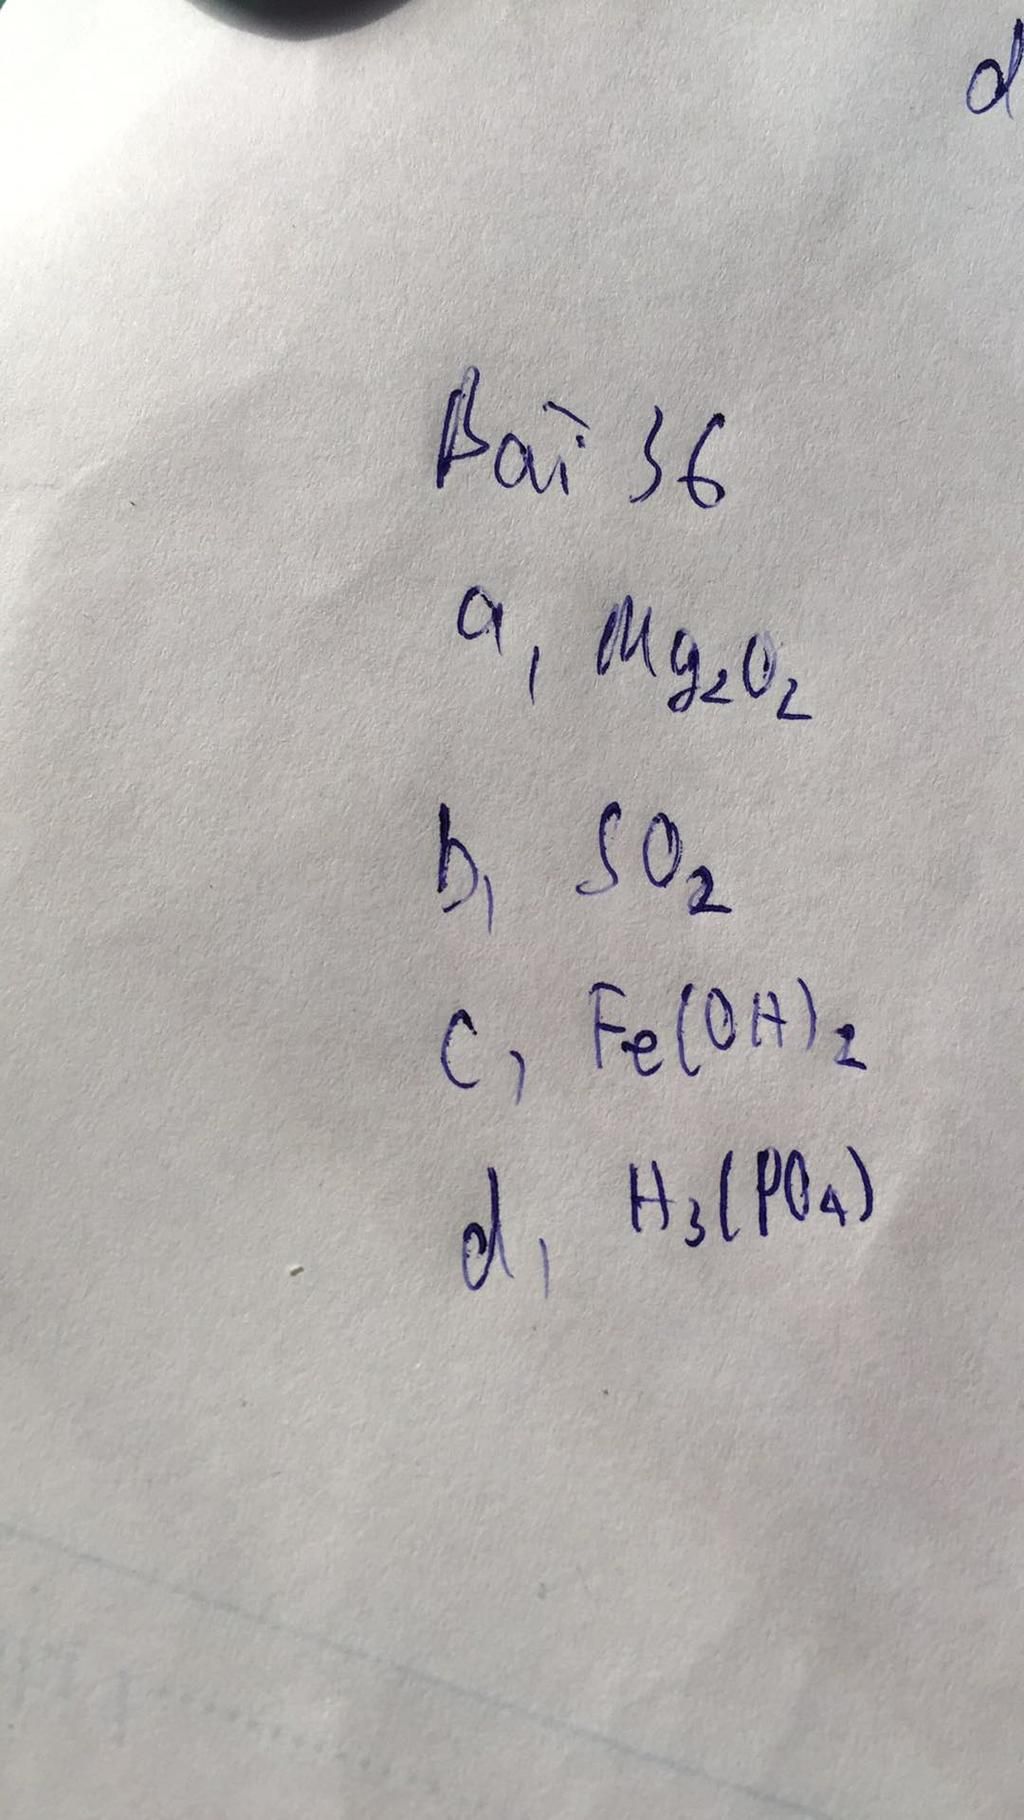 d
Bài 36
a, Mg₂O₂
b, SO₂
c, Fe(OH)₂
d, H₃(PO₄)